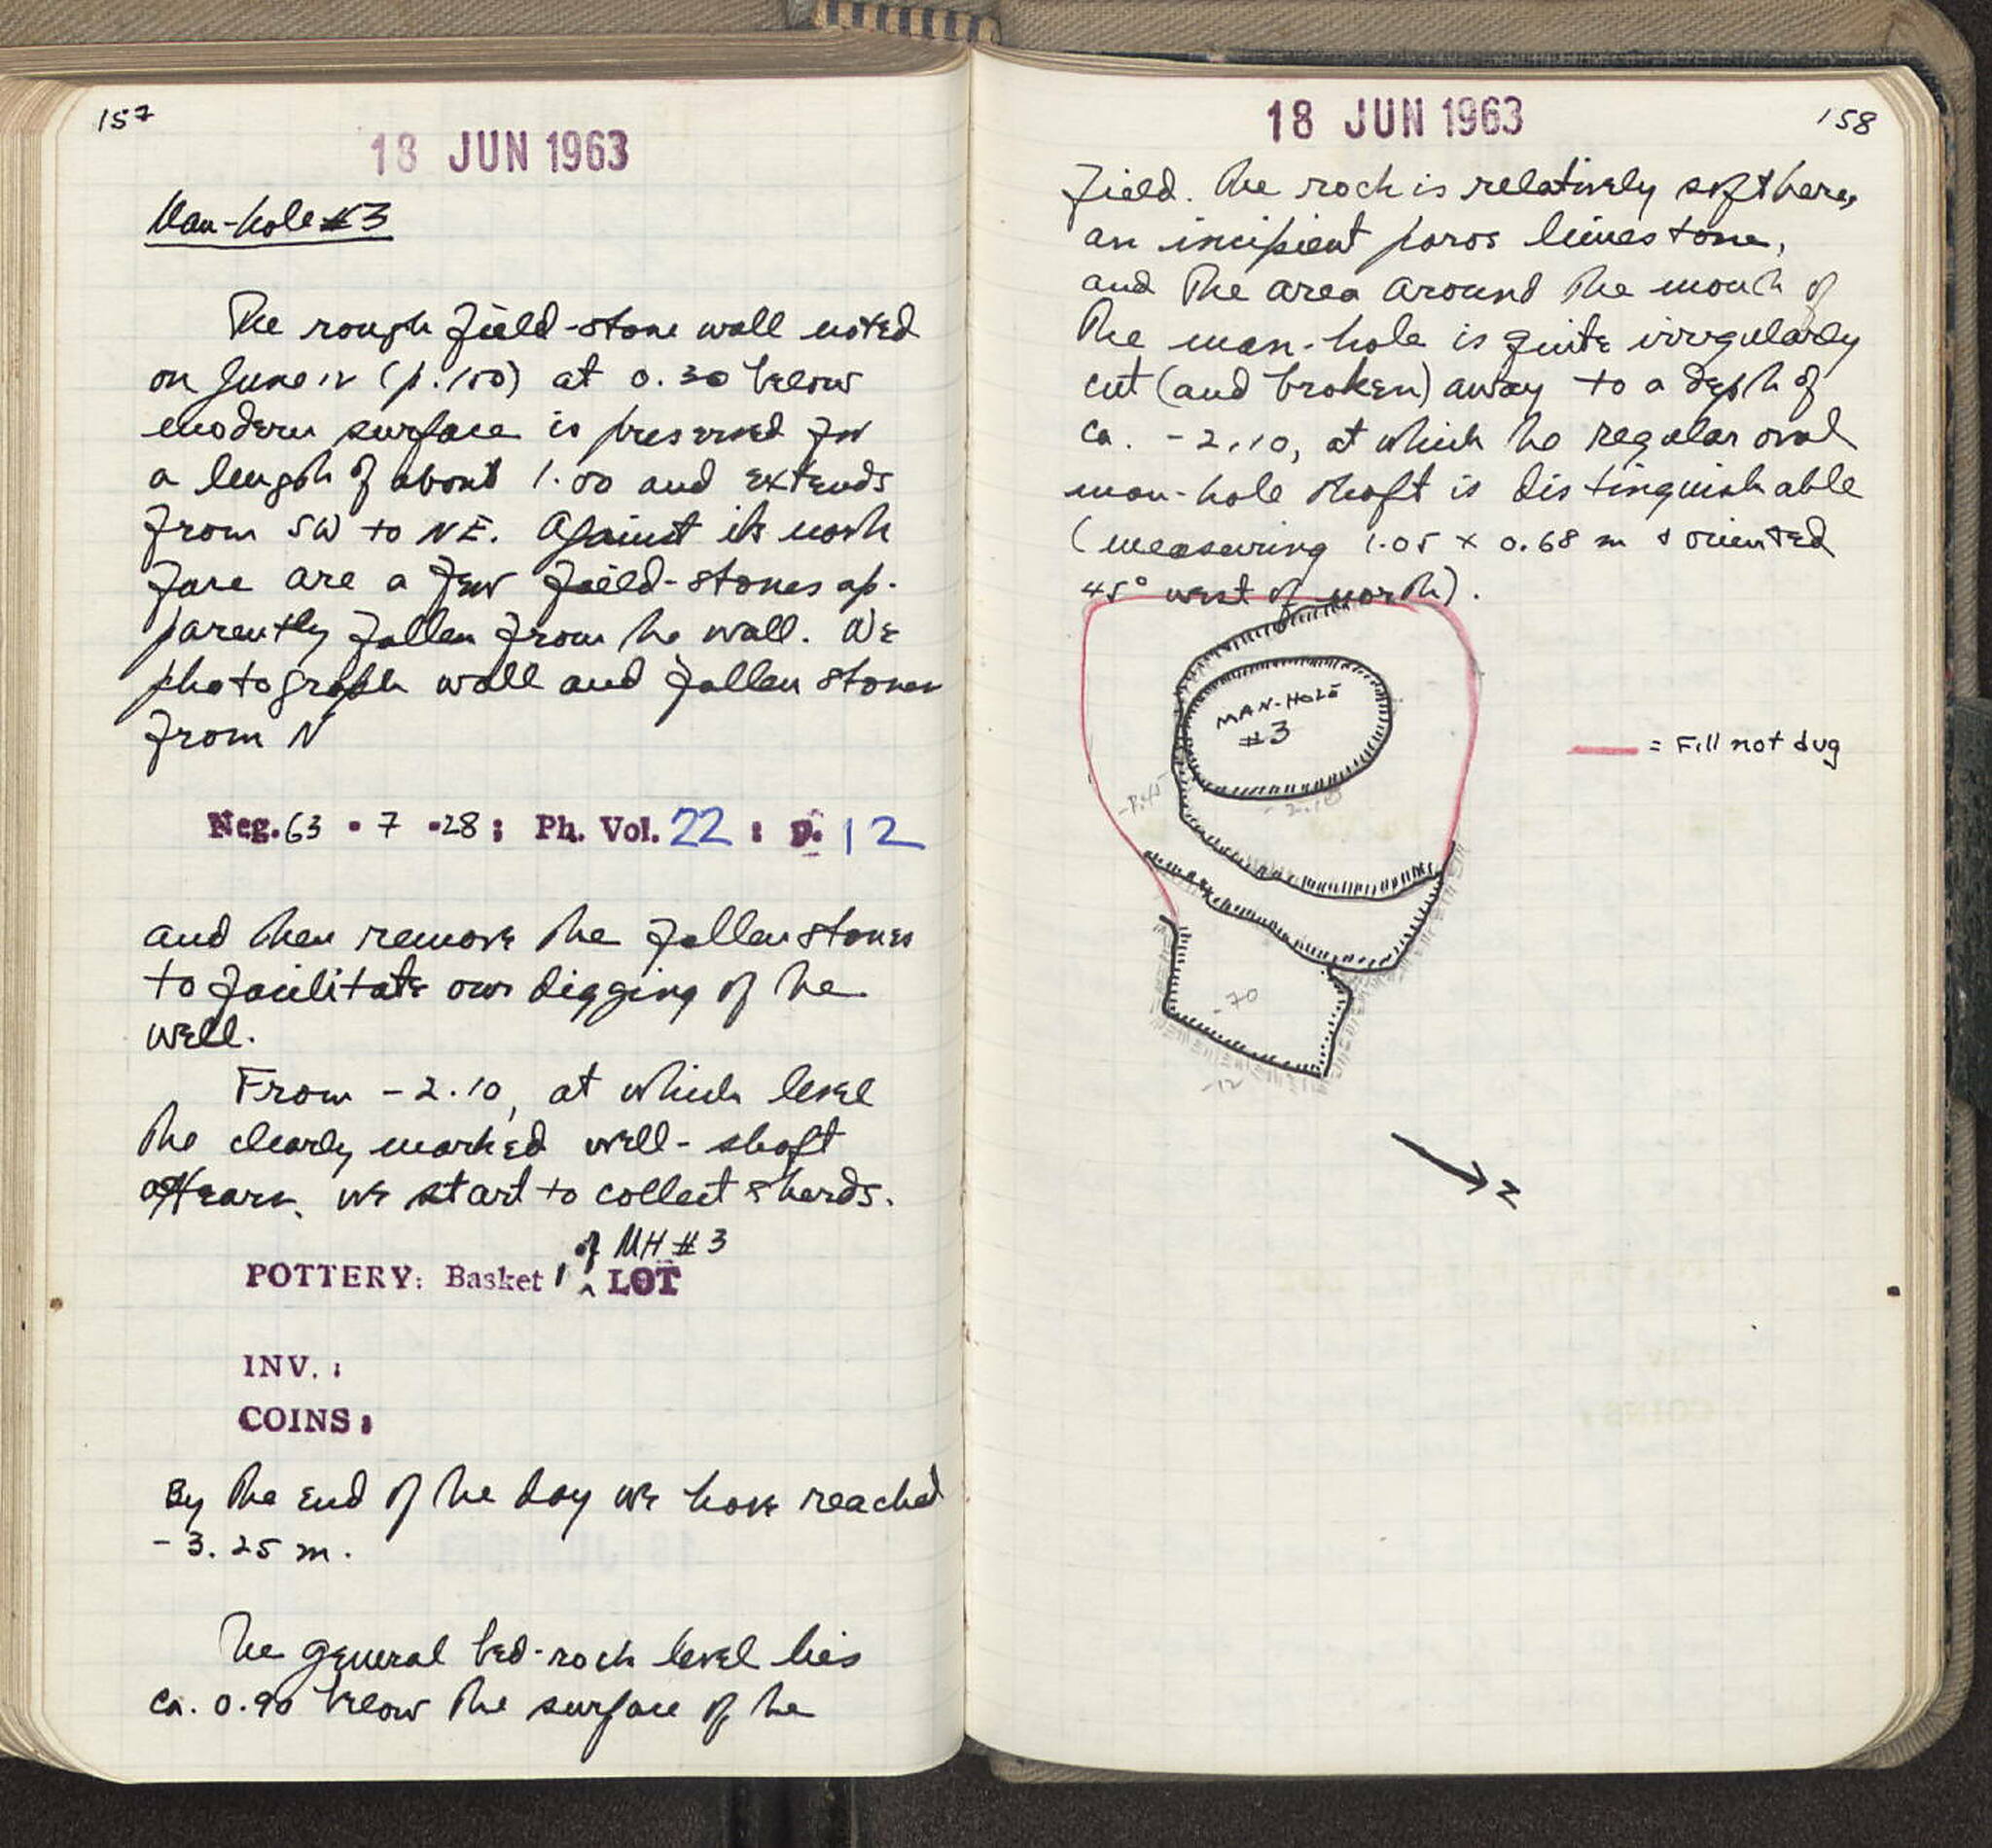 157
18 JUN 1963
Man-hole #3
The rough field-stone wall noted
on June 12 (p. 150) at 0.30 below
modern surface is preserved for
a length of about 1.00 and extends
from SW to NE. Against its north
face are a few field-stones ap-
parently fallen from the wall. We
photograph wall and fallen stones
from N
Neg. 63 - 7 - 28 ; Ph. Vol. 22 : p. 12
and then remove the fallen stones
to facilitate our digging of the
well.
From -2.10, at which level
the clearly marked well-shaft
appears, we start to collect sherds.
of MH #3
POTTERY: Basket 1 ^ LOT
INV. :
COINS :
By the end of the day we have reached
-3.25 m.
The general bed-rock level lies
ca. 0.90 below the surface of the
18 JUN 1963
158
field. The rock is relatively soft here,
an incipient poros limestone,
and the area around the mouth of
the man-hole is quite irregularly
cut (and broken) away to a depth of
ca. -2.10, at which the regular oval
man-hole shaft is distinguishable
(measuring 1.05 x 0.68 m & oriented
45° west of north).
MAN-HOLE
#3
= Fill not dug
-2.10
-70
-12
N